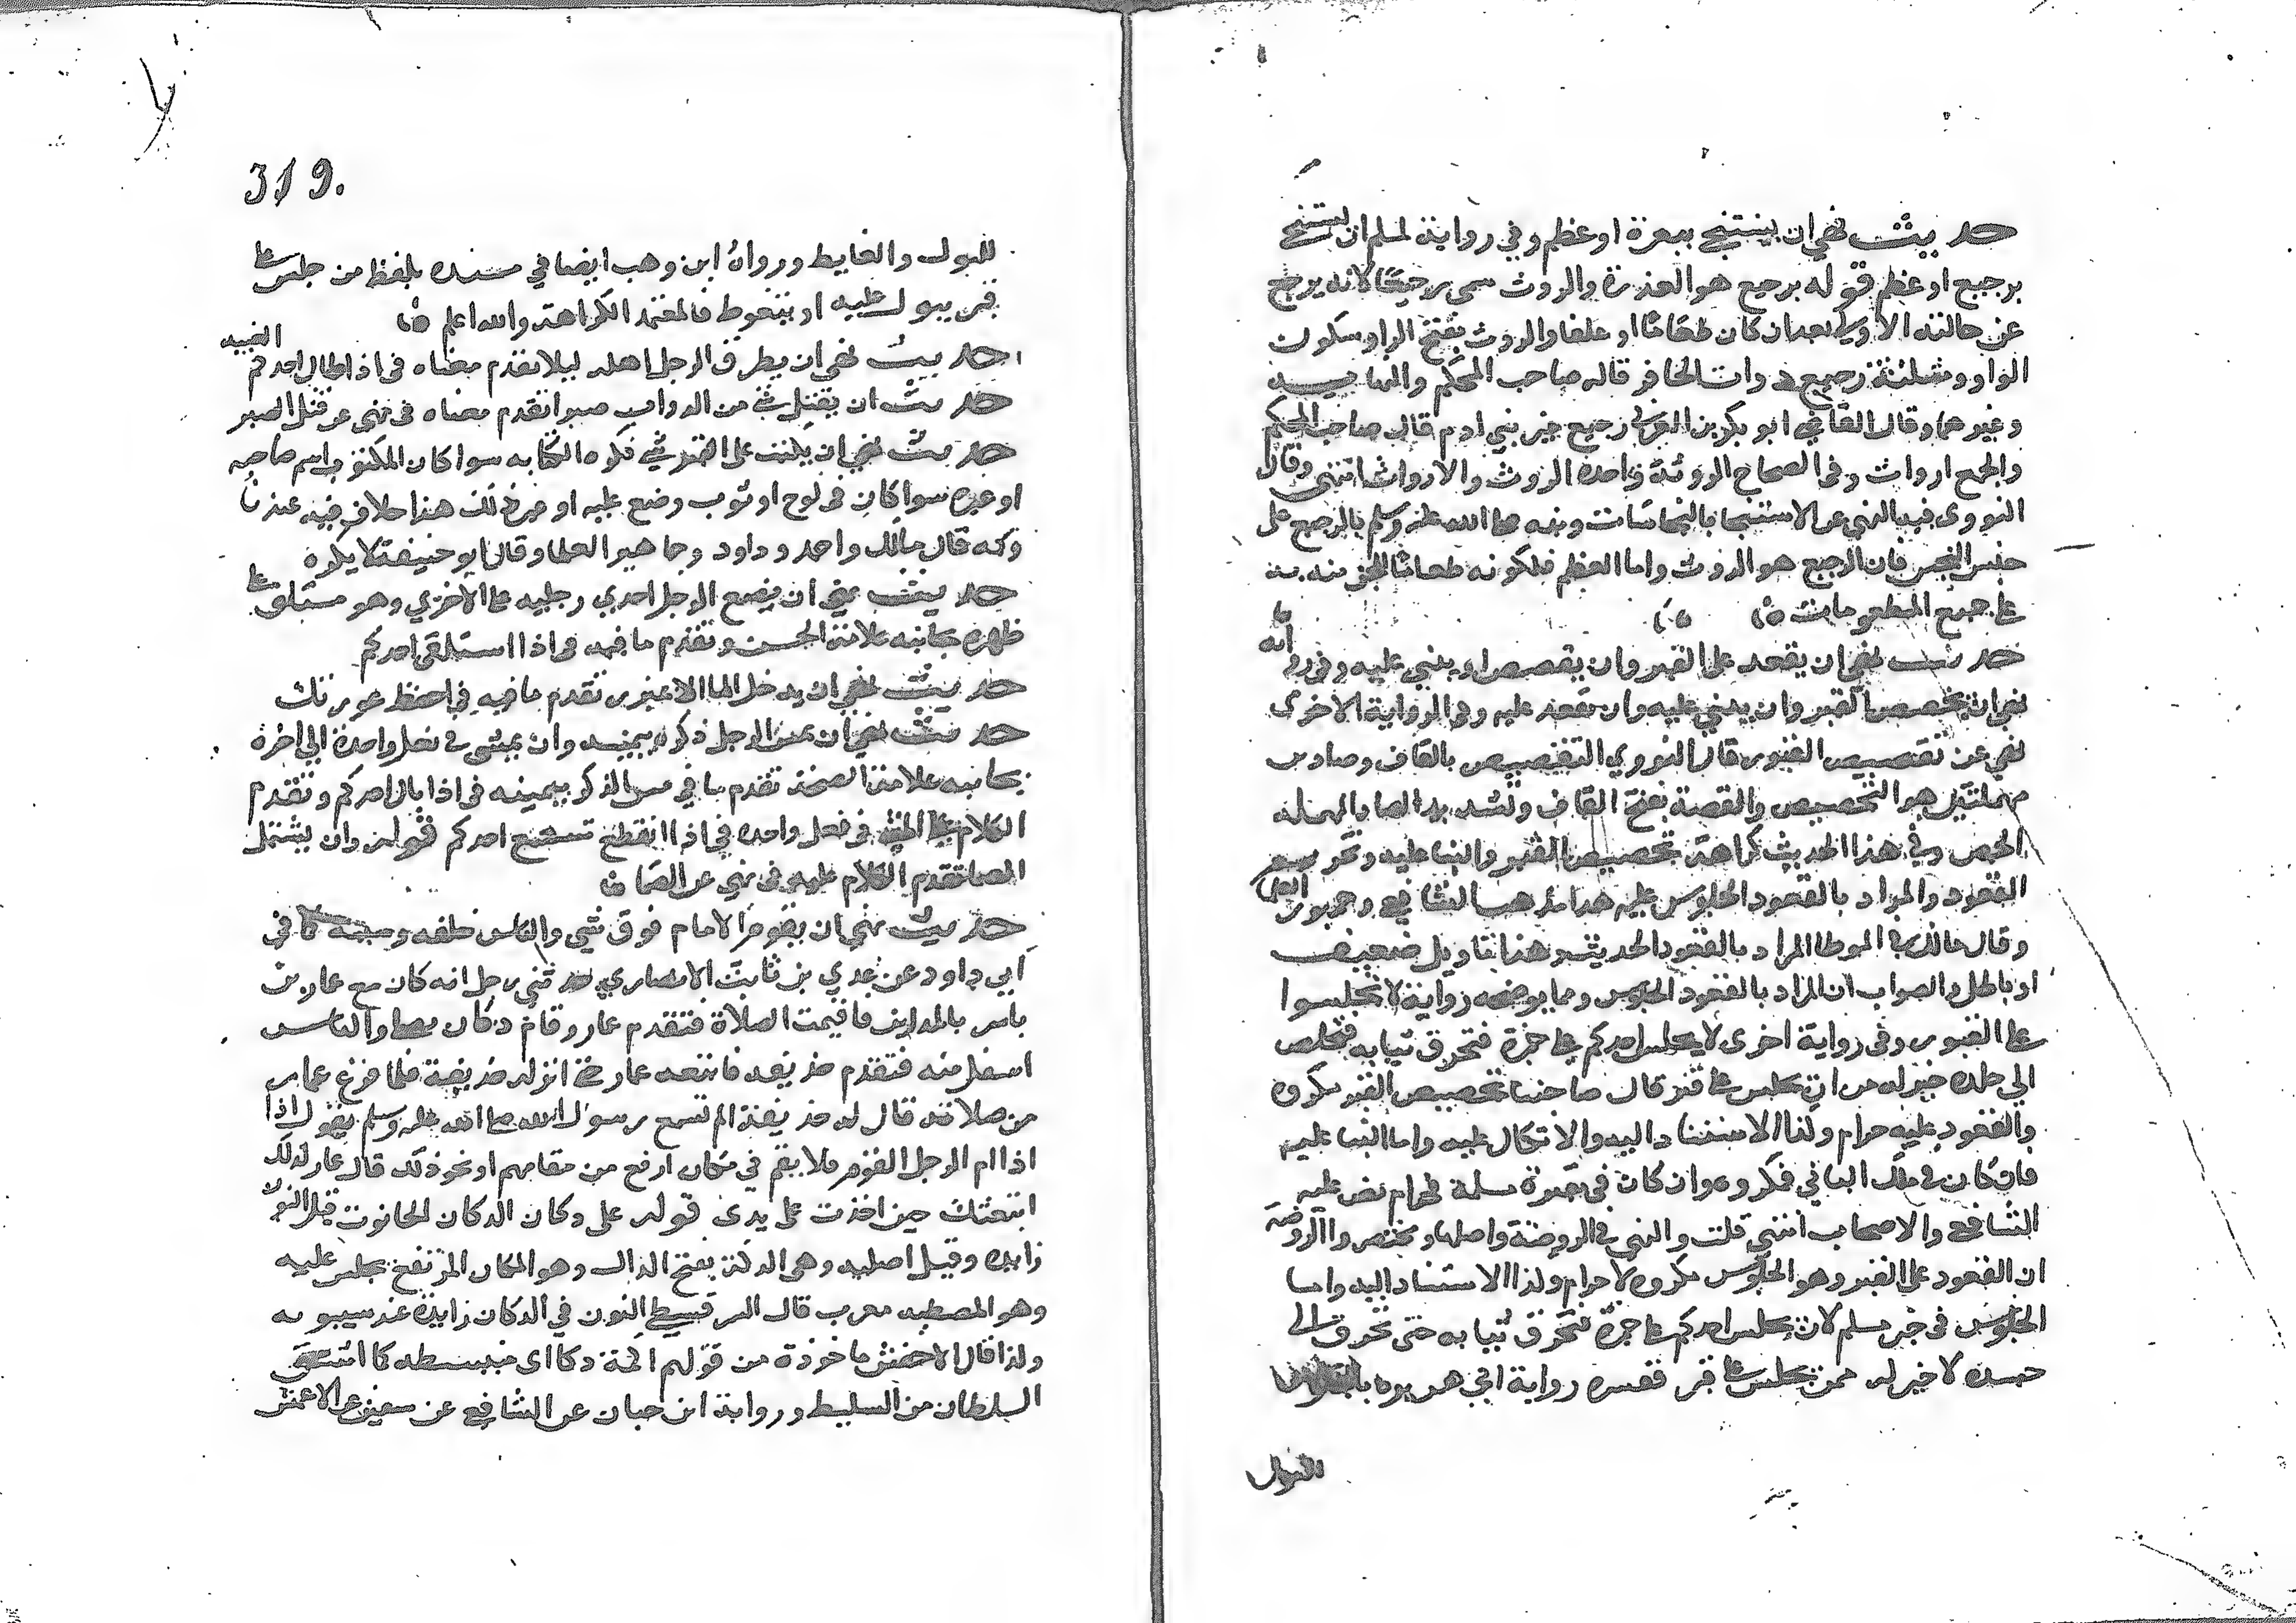 حديث نهى ان يستنجى ببعرة او عظم وفي رواية لمسلم ان يستنجى
برجيع او عظم قوله برجيع هو العذرة والروث سمى رجيعا لانه يرجع
عن حالته الاولى بعد ان كان طعاما او علفا والروث بفتح الراء وسكون
الواو ومثلثة رجيع ذوات الحافر قاله صاحب المحكم والنهاية
وغيرهما وقال القاضي ابو بكر بن العربي رجيع غير بني ادم قال صاحب المحكم
والجمع ارواث وفي الصحاح الروثة واحدة الروث والارواث انتهى وقال
النووى فيه النهي عن الاستنجا بالنجاسات ونبه صلى الله عليه وسلم بالرجيع على
جنس النجس فان الرجيع هو الروث واما العظم فلكونه طعاما للجن فنبه به
على جميع المطعومات
حديث نهى ان يقعد على القبر وان يقصص او يبنى عليه وفي رواية
نهى ان يجصص القبر وان يبنى عليه وان يقعد عليه وفي الرواية الاخرى
نهى عن تقصيص القبور قال النووي التقصيص بالقاف وصادين
مهملتين هو التجصيص والقصة بفتح القاف وتشديد الصاد المهملة
الجص وفي هذا الحديث كراهة تجصيص القبر والبنا عليه وتحريم
القعود والمراد بالقعود الجلوس عليه هذا مذهب الشافعي وجمهور العلما
وقال مالك في الموطا المراد بالقعود الحديث وهذا تاويل ضعيف
او باطل والصواب ان المراد بالقعود الجلوس ومما يوضحه رواية لا تجلسوا
على القبور وفي رواية اخرى لا يجلس احدكم على جمرة فتحرق ثيابه فتخلص
الى جلده خير له من ان يجلس على قبر قال صاحبنا تجصيص القبر مكروه
والقعود عليه حرام وكذا الاستناد اليه والاتكال عليه واما البنا عليه
فان كان في ملك الباني فمكروه وان كان في مقبرة مسبلة فحرام نص عليه
الشافعي والاصحاب انتهى قلت والنهي في الروضة واصلها ومختصر والروضة
ان القعود على القبر وهو الجلوس مكروه لا حرام وكذا الاستناد اليه واما
الجلوس في خبر مسلم لان يجلس احدكم على جمرة فتحرق ثيابه حتى تحرق الى
جسده لا خير له ممن يجلس على قبر ففسره رواية ابي هريرة
للبول
319.
للبول والغايط ورواه ابن وهب ايضا في مسنده بلفظ من جلس على
قبر يبول عليه او يتغوط فالمعتمد الكراهة والله اعلم
حديث نهى ان يطرق الرجل اهله ليلا تقدم معناه في اذا اطال احدكم الغيبة
حديث ان يقتل شي من الدواب صبرا تقدم معناه في نهى عن قتل الصبر
حديث نهى ان يكتب على القبر شي فكره الكتابة سوا كان المكتوب اسم صاحبه
او غيره سوا كان في لوح او ثوب وضع عليه او غير ذلك هذا خلاف فيه عندنا
وبه قال مالك واحمد وداود وجماهير العلما وقال ابو حنيفة لا يكره
حديث نهى ان يضع الرجل احدي رجليه على الاخري وهو مستلق على
ظهره بجانبه علامة الحسن وتقدم ما فيه في اذا استلقى احدكم
حديث نهى ان يدخل الما الا بمئزر تقدم ما فيه في احفظ عورتك
حديث نهى ان يمس الرجل ذكره بيمينه وان يمشى في نعل واحدة الى اخره
بجانبه علامة الصحة تقدم ما في مس الذكر بيمينه في اذا بال احدكم وتقدم
الكلام على المشى في نعل واحده في اذا انقطع شسع احدكم قوله وان يشتمل
الصما تقدم الكلام عليه في نهى عن الصما
حديث نهى ان يقوم الامام فوق شي والناس خلفه كما في
ابي داود عن عدي بن ثابت الانصاري حدثني رجل انه كان مع عمار بن
ياسر بالمداين فاقيمت الصلاة فتقدم عمار وقام دكان يصلي والناس
اسفل منه فتقدم حذيفه فاتبعه عمار حتى انزله حذيفة فلما فرغ عمار
من صلاته قال له حذيفة الم تسمع رسول الله صلى الله عليه وسلم يقول اذا
اذا ام الرجل القوم فلا يقم في مكان ارفع من مقامهم او نحو ذلك قال عمار لذلك
اتبعتك حين اخذت على يدى قوله على دكان الدكان الحانوت قيل النون
زايده وقيل اصلية وهى الدكة بفتح الدال وهو المكان المرتفع يجلس عليه
وهو المصطبه معرب قال السرقسطي النون في الدكان زايدة عند سيبويه
وكذا قال الاخفش ماخوذة من قولهم اكمة دكا اى منبسطه كما اشتق
السلطان من السليط ورواية ابن حبان عن الشافعي عن سفين عن الاعمش